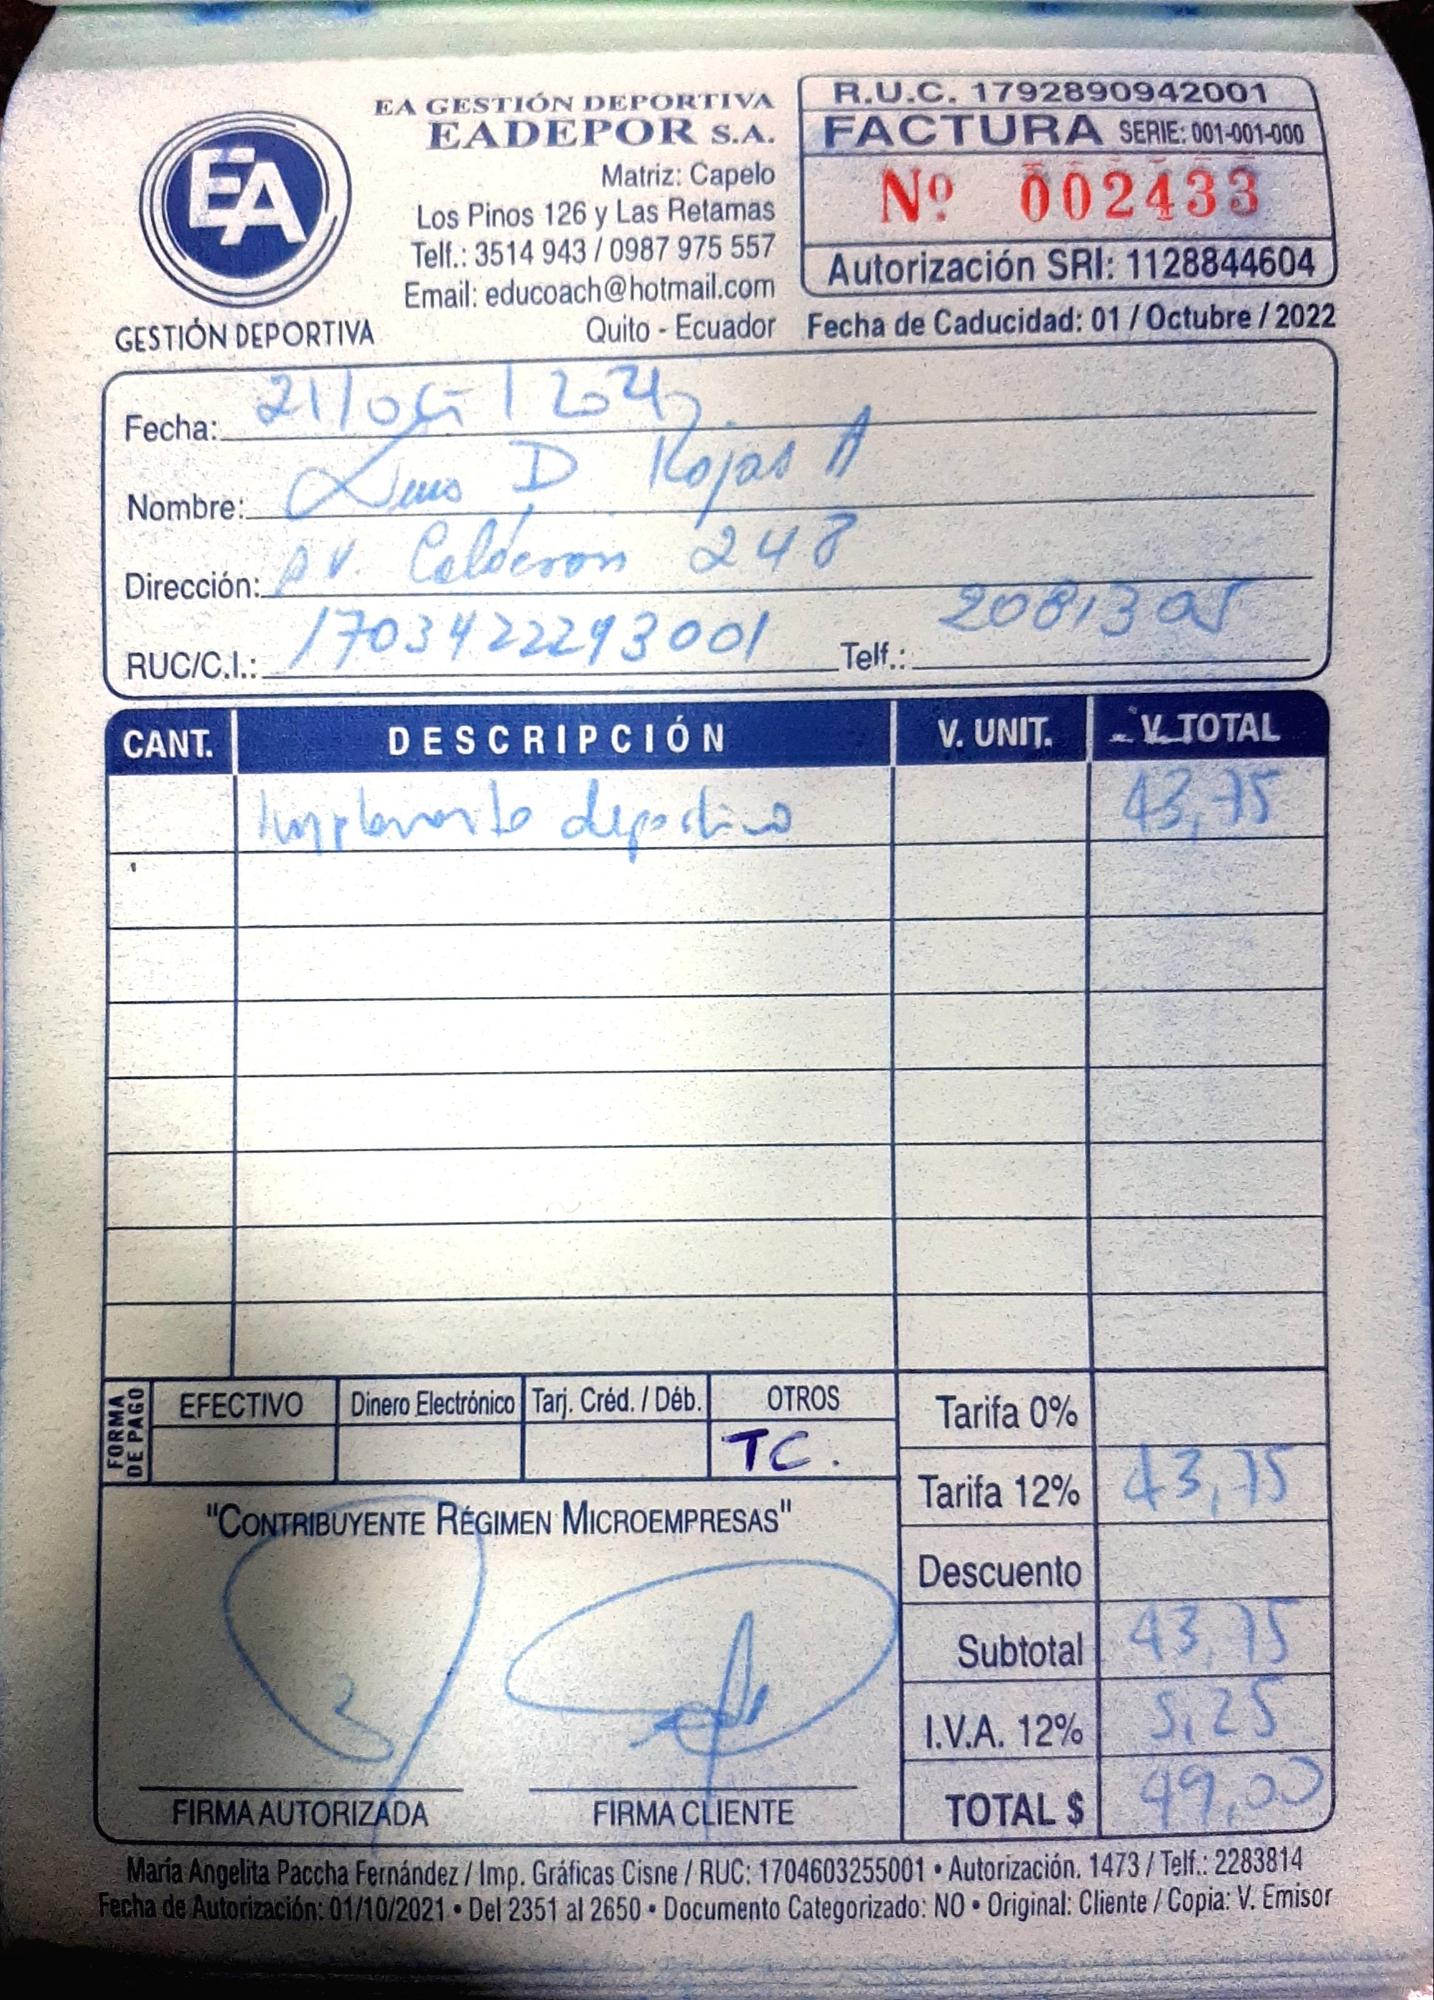 EA
GESTIÓN DEPORTIVA
EA GESTIÓN DEPORTIVA
EADEPOR S.A.
Matriz: Capelo
Los Pinos 126 y Las Retamas
Telf.: 3514 943 / 0987 975 557
Email: educoach@hotmail.com
Quito - Ecuador
R.U.C. 1792890942001
FACTURA SERIE: 001-001-000
Nº 002433
Autorización SRI: 1128844604
Fecha de Caducidad: 01 / Octubre / 2022
Fecha: 21/oct/2021
Nombre: D Rojas A
Dirección: AV. Calderon 248
RUC/C.I.: 1703422293001 Telf.: 2081305
CANT. DESCRIPCIÓN V. UNIT. V. TOTAL
Implemento deportivo 43,75
FORMA DE PAGO
EFECTIVO Dinero Electrónico Tarj. Créd. / Déb. OTROS
TC.
Tarifa 0%
Tarifa 12% 43,75
Descuento
Subtotal 43,75
I.V.A. 12% 5,25
TOTAL $ 49,00
"CONTRIBUYENTE RÉGIMEN MICROEMPRESAS"
FIRMA AUTORIZADA FIRMA CLIENTE
María Angelita Paccha Fernández / Imp. Gráficas Cisne / RUC: 1704603255001 • Autorización. 1473 / Telf.: 2283814
Fecha de Autorización: 01/10/2021 • Del 2351 al 2650 • Documento Categorizado: NO • Original: Cliente / Copia: V. Emisor